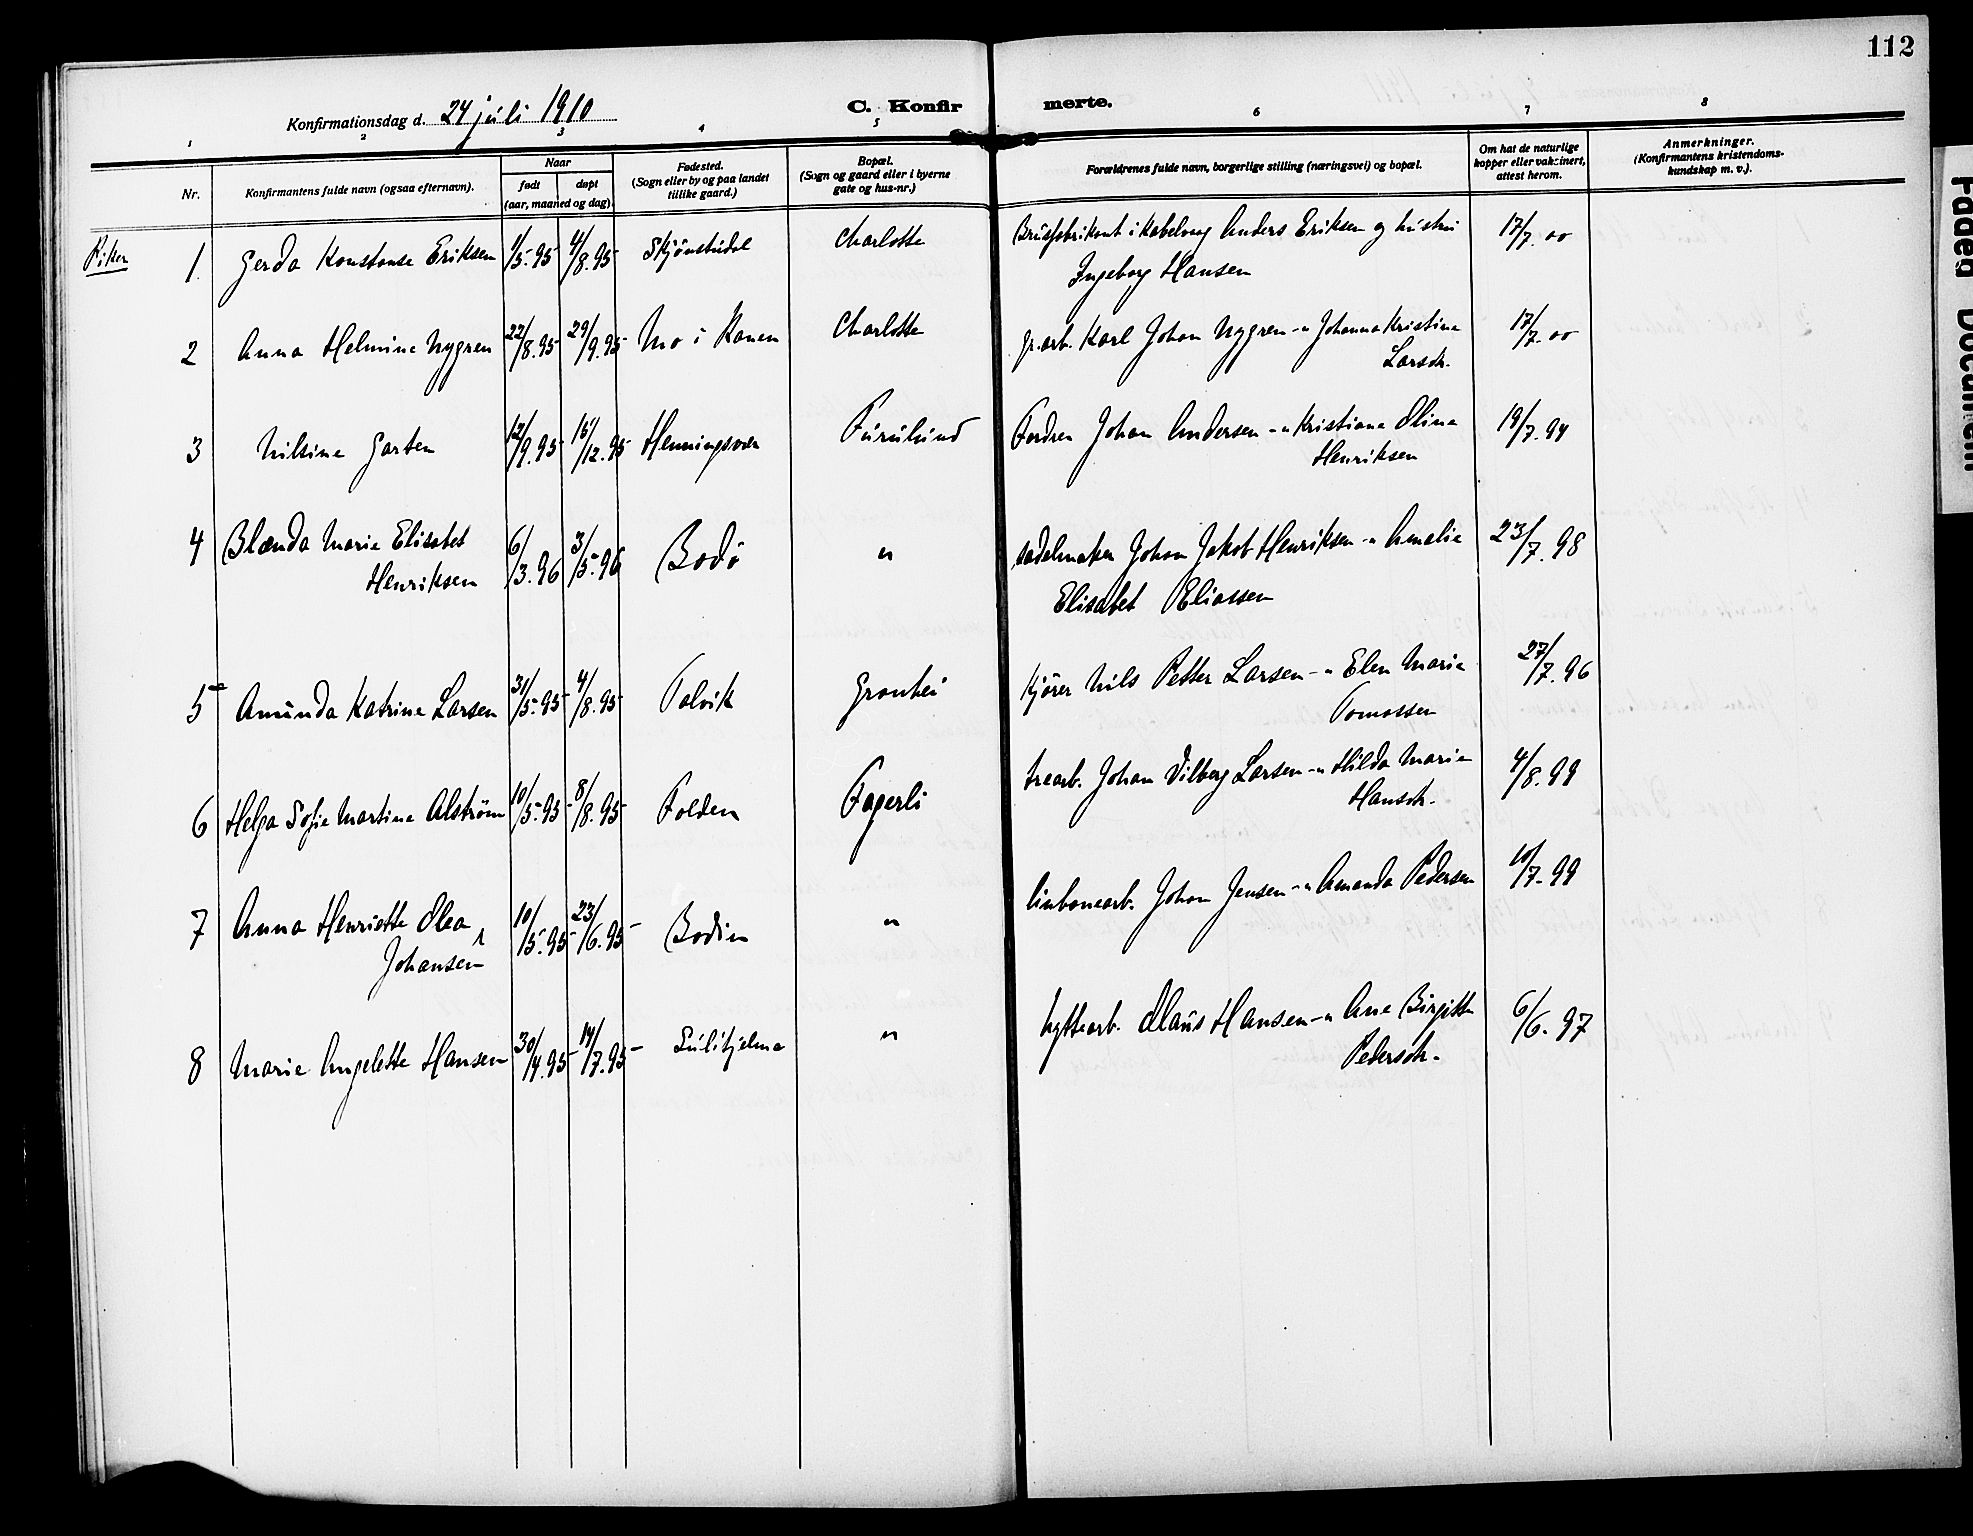 112
Konfirmationsdag d. 24 juli 1910
C. Konfirmerte.
1 2 3 4 5 6 7 8
Nr.
Konfirmantens fulde navn (ogsaa efternavn).
Naar
født
døpt
(aar, maaned og dag).
Fødested.
(Sogn eller by og paa landet
tillike gaard.)
Bopæl.
(Sogn og gaard eller i byerne
gate og hus-nr.)
Forældrenes fulde navn, borgerlige stilling (næringsvei) og bopæl.
Om hat de naturlige
kopper eller vakzinert,
attest herom.
Anmerkninger.
(Konfirmantens kristendoms-
kundskap m. v.).
Piker
1. Gerda Konstanse Eriksen 1/5.95 4/8.95 Skjönstudal Charlotte Brusfabrikant i Kabelvaag Anders Eriksen og hustru 17/7.00
Ingeborg Hansen
2 Anna Helmine Nygren 22/8.95 29/9.95 Mo i Ranen Charlotte gr.arb. Karl Johan Nygren -"- Johanna Kristine 17/7.00
Larsdr.
3 Nilsine Garten 12/9.95 15/12.95 Henningsvær Furulund Johan Andersen -"- Kristiane Oline 19/7.97
Henriksen
4 Blænda Marie Elisabet 6/3.96 3/5.96 Bodö " sadelmaker Johan Jakob Henriksen -"- Amalie 23/7.98
Henriksen
Elisabet Eliassen
5 Amunda Katrine Larsen 31/5.95 4/8.95 Talvik Granhei kjörer Nils Petter Larsen -"- Elen Marie 27/7.96
Tomassen
6 Helga Sofie Martine Alström 10/5.95 8/8.95 Folden Fagerli trearb. Johan Vilberg Larsen -"- Hilda Marie 4/8.99
Hansdr.
7 Anna Henriette Olea 10/5.95 23/6.95 Bodin " linbanearb. Johan Jensen -"- Amanda Pedersen 10/7.99
Johansen
8 Marie Angelette Hansen 30/4.95 14/7.95 Sulitjelma " hyttearb. Olaus Hansen -"- Ane Birgitte 6/6.97
Pedersdr.
Faded Document